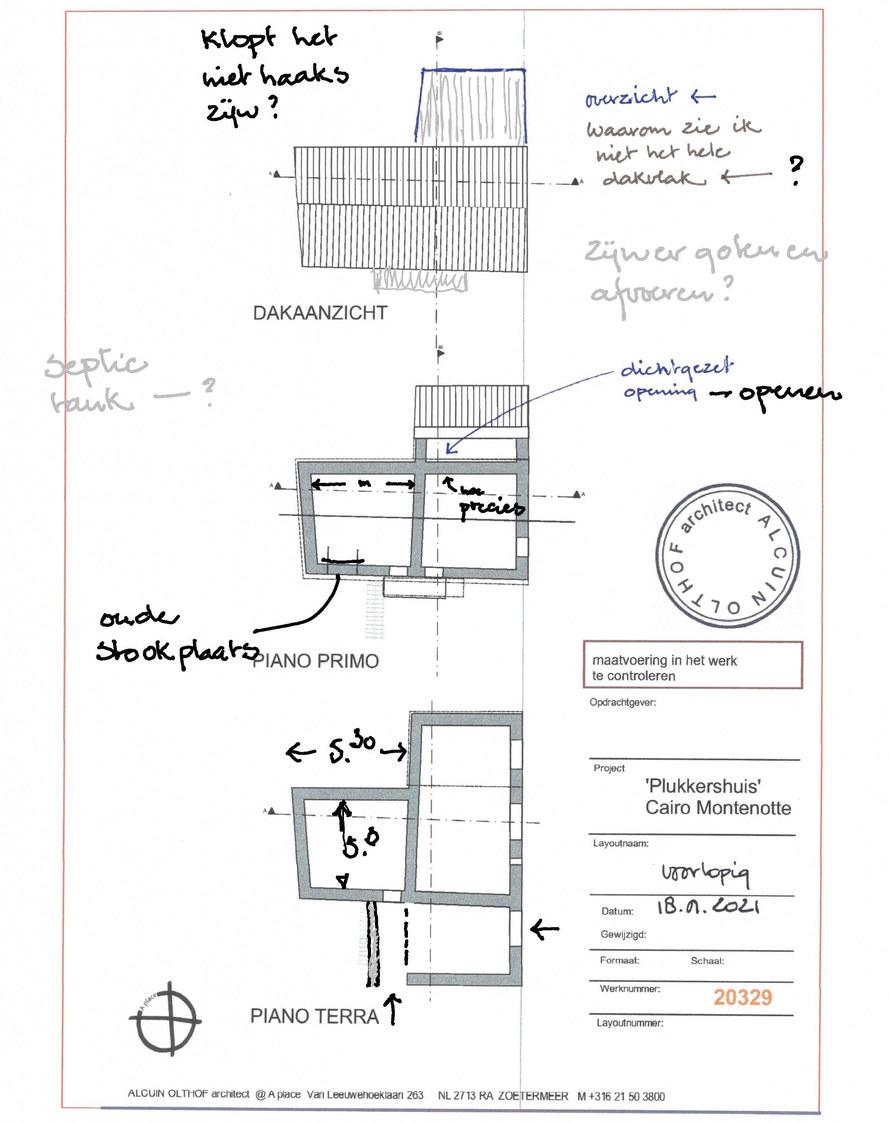 Klopt het
niet haaks
zijn?
B
overzicht ←
waarom zie ik
niet het hele
dakvlak ← ?
A
A
Zijn er goten en
afvoeren?
DAKAANZICHT
B
Septic
tank — ?
dichtgezet
opening → openen
A
A
m
hoe
precies
architect ALCUIN OLTHOF
oude
stookplaats
PIANO PRIMO
maatvoering in het werk
te controleren
Opdrachtgever:
← 5.30 →
Project
'Plukkershuis'
Cairo Montenotte
A
5.0
Layoutnaam:
voorlopig
Datum: 18.01.2021
Gewijzigd:
←
Formaat: Schaal:
Werknummer: 20329
Layoutnummer:
A place
PIANO TERRA ↑
ALCUIN OLTHOF architect @ A place Van Leeuwehoeklaan 263 NL 2713 RA ZOETERMEER M +316 21 50 3800